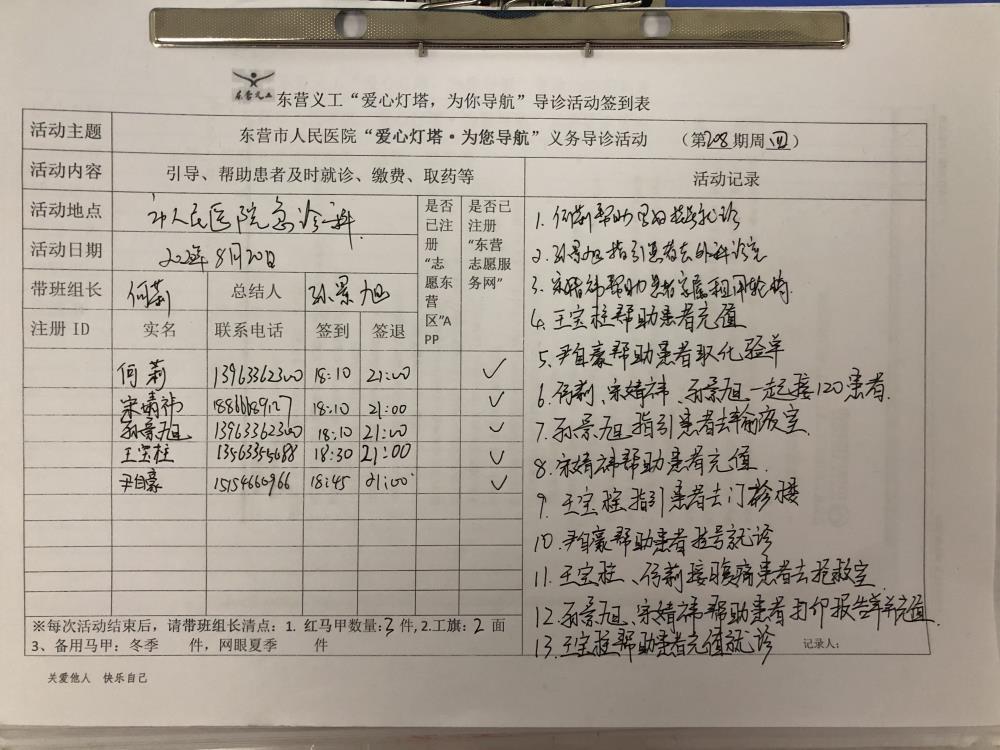 东营义工
东营义工“爱心灯塔,为你导航”导诊活动签到表
活动主题 东营市人民医院“爱心灯塔·为您导航”义务导诊活动 (第208期周四)
活动内容 引导、帮助患者及时就诊、缴费、取药等 活动记录
活动地点 市人民医院急诊科 是否已注册“志愿东营区”APP 是否已注册“东营志愿服务网”
活动日期 8月20日
带班组长 何莉 总结人 孙景旭
注册 ID 实名 联系电话 签到 签退
何莉 13963362300 18:10 21:00 ✓
宋婧祎 18:10 21:00 ✓
孙景旭 13963362300 18:10 21:00 ✓
王宝柱 18:30 21:00 ✓
尹自豪 15154660966 18:45 21:00 ✓
1. 何莉帮助患者挂号就诊
2. 孙景旭指引患者去外科诊室
3. 宋婧祎帮助患者家属租用轮椅
4. 王宝柱帮助患者充值
5. 尹自豪帮助患者取化验单
6. 何莉、宋婧祎、孙景旭一起接120患者.
7. 孙景旭指引患者去输液室.
8. 宋婧祎帮助患者充值.
9. 王宝柱指引患者去门诊楼
10. 尹自豪帮助患者挂号就诊
11. 王宝柱、何莉接腹痛患者去抢救室.
12. 孙景旭、宋婧祎帮助患者打印报告单并充值
13. 王宝柱帮助患者充值就诊
记录人:
※每次活动结束后,请带班组长清点:1. 红马甲数量:3件,2.工旗:2面
3、备用马甲:冬季 件,网眼夏季 件
关爱他人 快乐自己